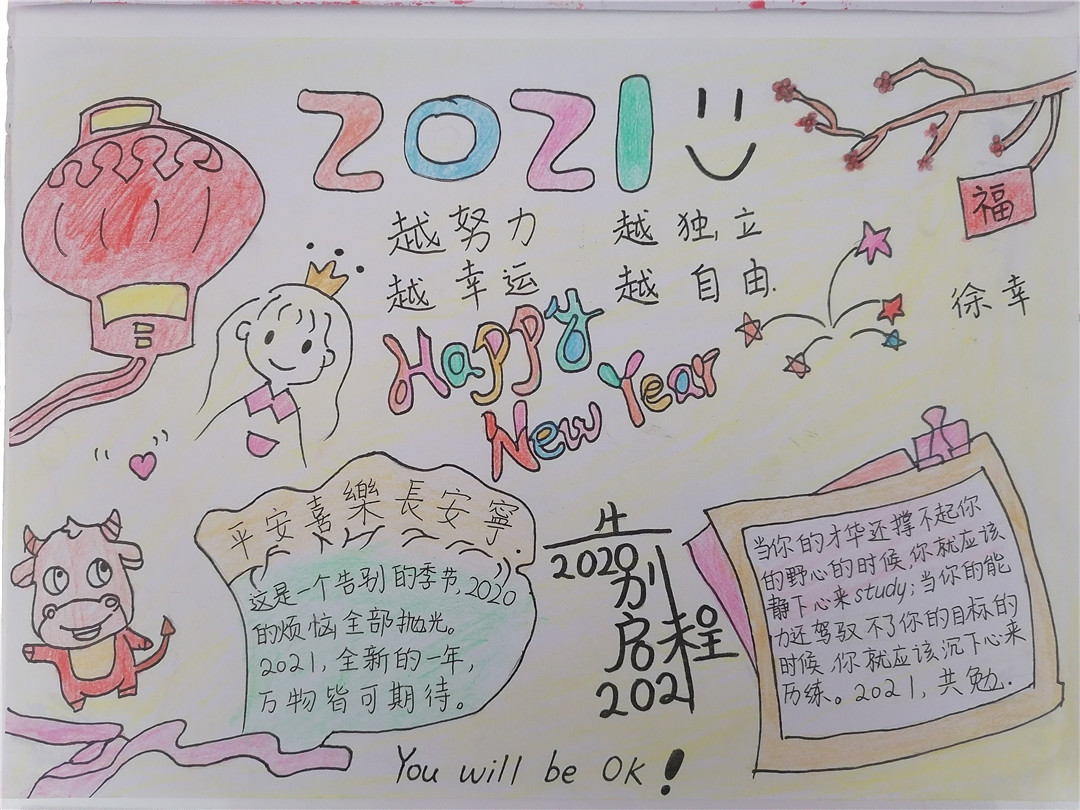 2021
福
越努力 越独立
越幸运 越自由.
徐幸
Happy
New Year
平安喜樂長安寧.
这是一个告别的季节,2020
的烦恼全部抛光。
2021,全新的一年,
万物皆可期待。
告
2020
别
启程
2021
当你的才华还撑不起你
的野心的时候,你就应该
静下心来study;当你的能
力还驾驭不了你的目标的
时候,你就应该沉下心来
历练。2021,共勉.
You will be OK!